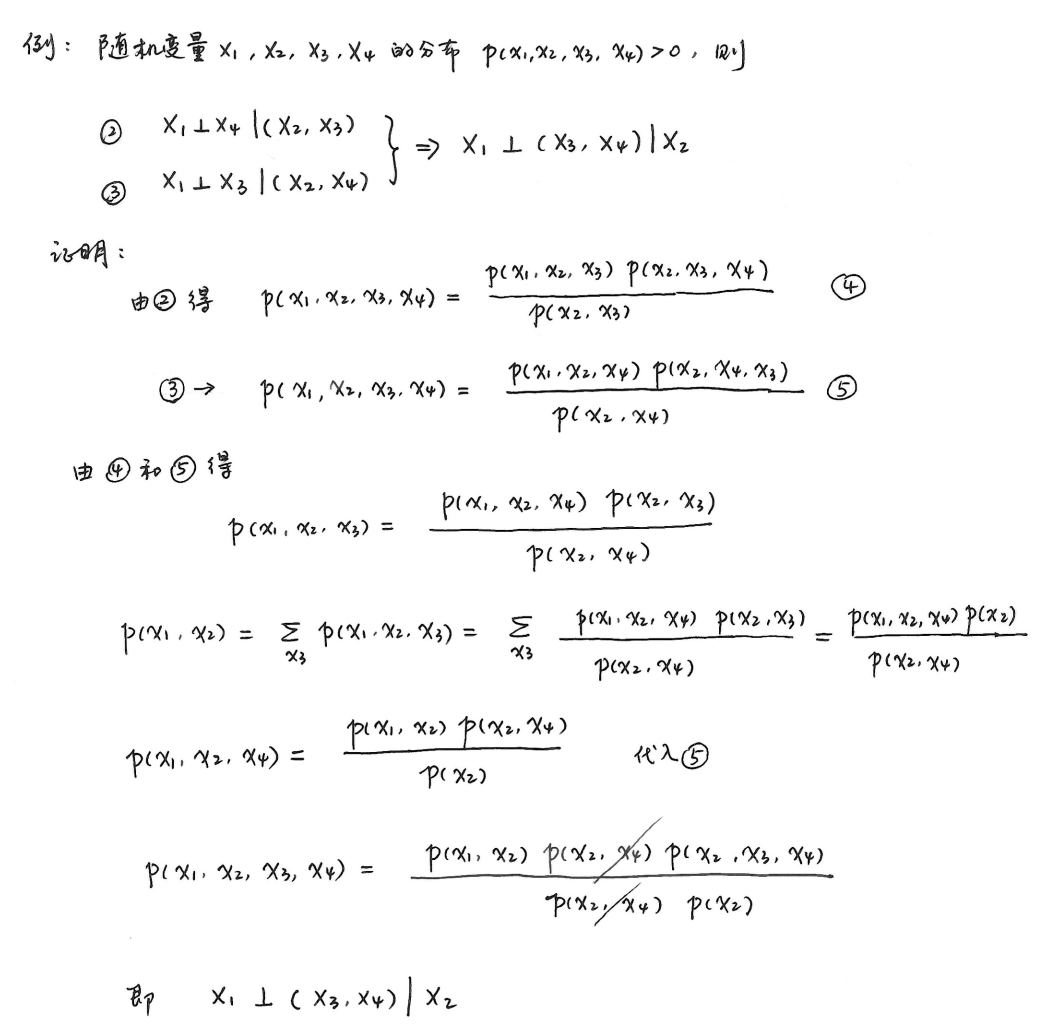 例: 随机变量 X₁, X₂, X₃, X₄ 的分布 p(x₁,x₂,x₃,x₄)>0, 则
② X₁⊥X₄|(X₂,X₃)
} ⇒ X₁ ⊥ (X₃,X₄)|X₂
③ X₁⊥X₃|(X₂,X₄)
证明:
由②得 p(x₁,x₂,x₃,x₄) = p(x₁,x₂,x₃) p(x₂,x₃,x₄) / p(x₂,x₃) ④
③→ p(x₁,x₂,x₃,x₄) = p(x₁,x₂,x₄) p(x₂,x₄,x₃) / p(x₂,x₄) ⑤
由④和⑤得
p(x₁,x₂,x₃) = p(x₁,x₂,x₄) p(x₂,x₃) / p(x₂,x₄)
p(x₁,x₂) = Σ_x₃ p(x₁,x₂,x₃) = Σ_x₃ p(x₁,x₂,x₄) p(x₂,x₃) / p(x₂,x₄) = p(x₁,x₂,x₄) p(x₂) / p(x₂,x₄)
p(x₁,x₂,x₄) = p(x₁,x₂) p(x₂,x₄) / p(x₂) 代入⑤
p(x₁,x₂,x₃,x₄) = p(x₁,x₂) p(x₂,x₄) p(x₂,x₃,x₄) / p(x₂,x₄) p(x₂)
即 X₁ ⊥ (X₃,X₄)|X₂